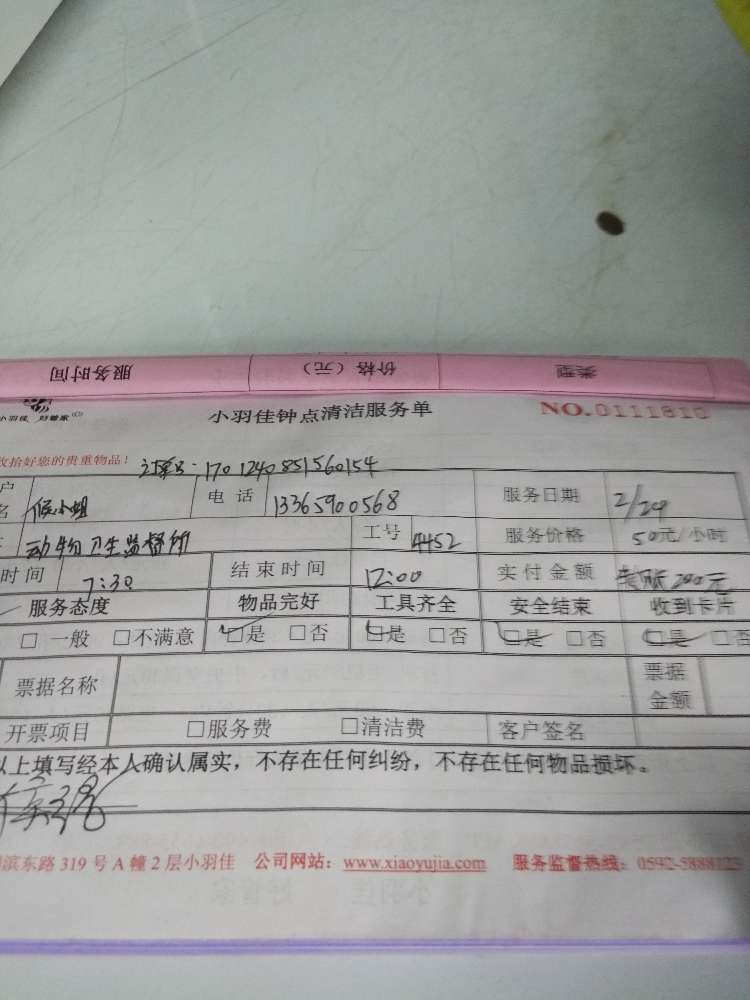 服务时间 价格（元） 类型
小羽佳 好管家
小羽佳钟点清洁服务单 NO.0111810
收拾好您的贵重物品！ 订单号：1701240851560154
户名 候小姐 电话 13365900568 服务日期 2/24
动物卫生监督所 工号 4452 服务价格 50元/小时
时间 7:30 结束时间 12:00 实付金额 200元
服务态度 物品完好 工具齐全 安全结束 收到卡片
□一般 □不满意 □是 □否 □是 □否 □是 □否 □是 □否
票据名称 票据金额
开票项目 □服务费 □清洁费 客户签名
以上填写经本人确认属实，不存在任何纠纷，不存在任何物品损坏。
滨东路319号A幢2层小羽佳 公司网站：www.xiaoyujia.com 服务监督热线：0592-5888123
小羽佳 好管家